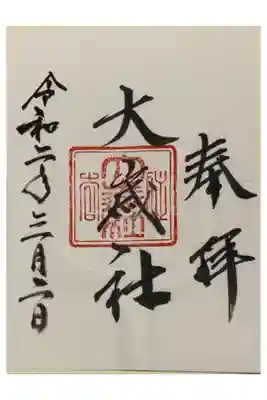 奉拝
大歳社
令和六年三月二日